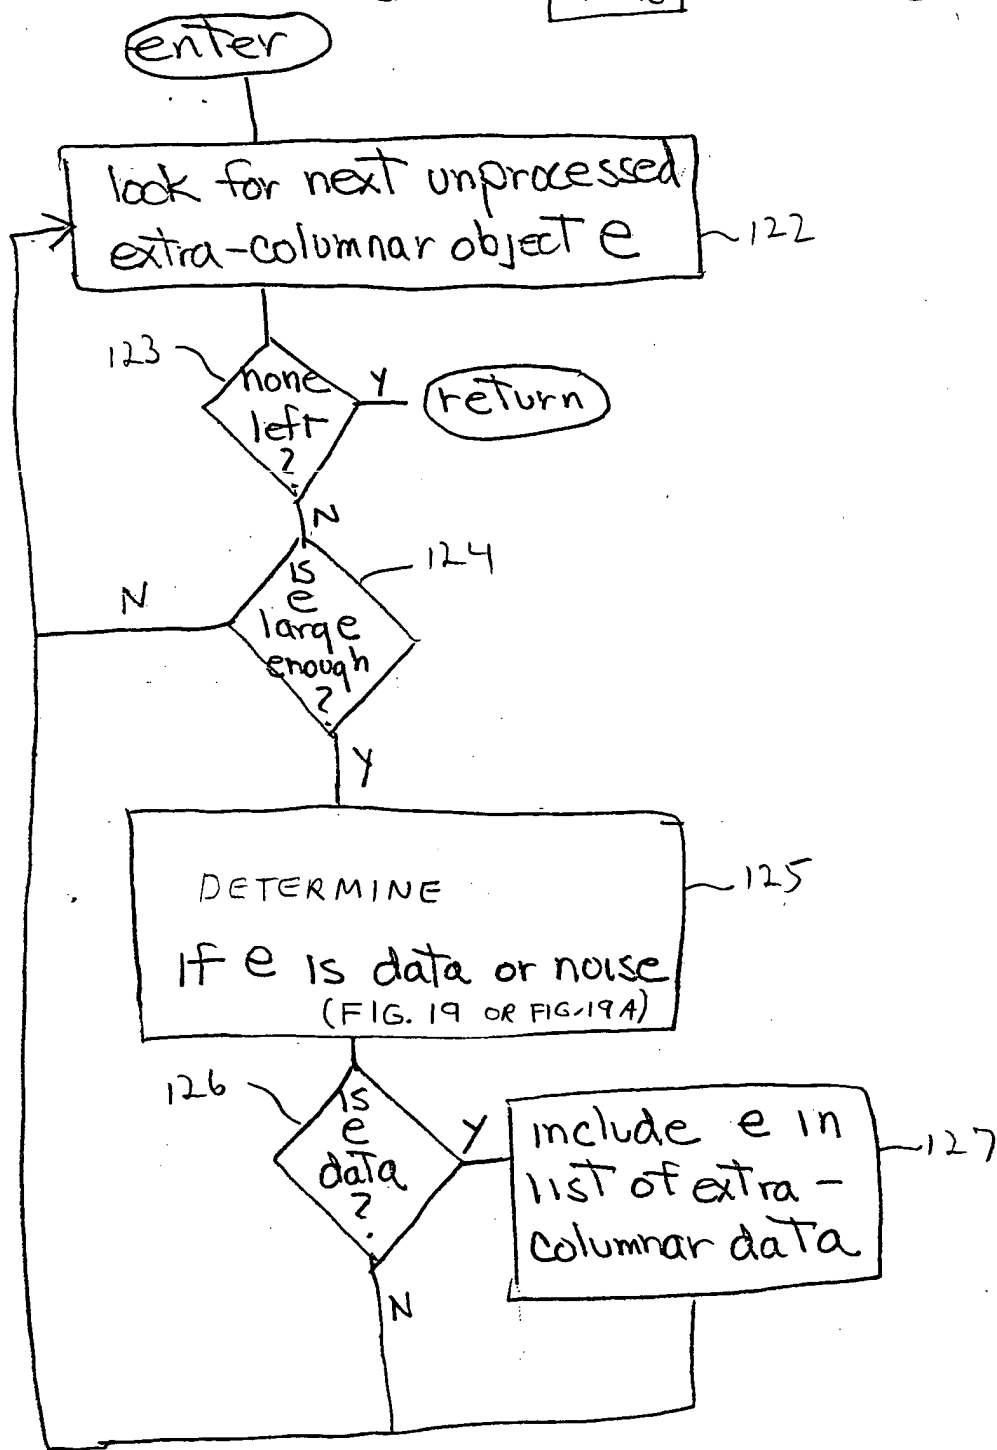 enter
look for next unprocessed
extra-columnar object e
122
123
none
left
?
Y
return
N
124
is
e
large
enough
?
N
Y
DETERMINE
if e is data or noise
(FIG. 19 OR FIG. 19A)
125
126
is
e
data
?
Y
include e in
list of extra-
columnar data
127
N